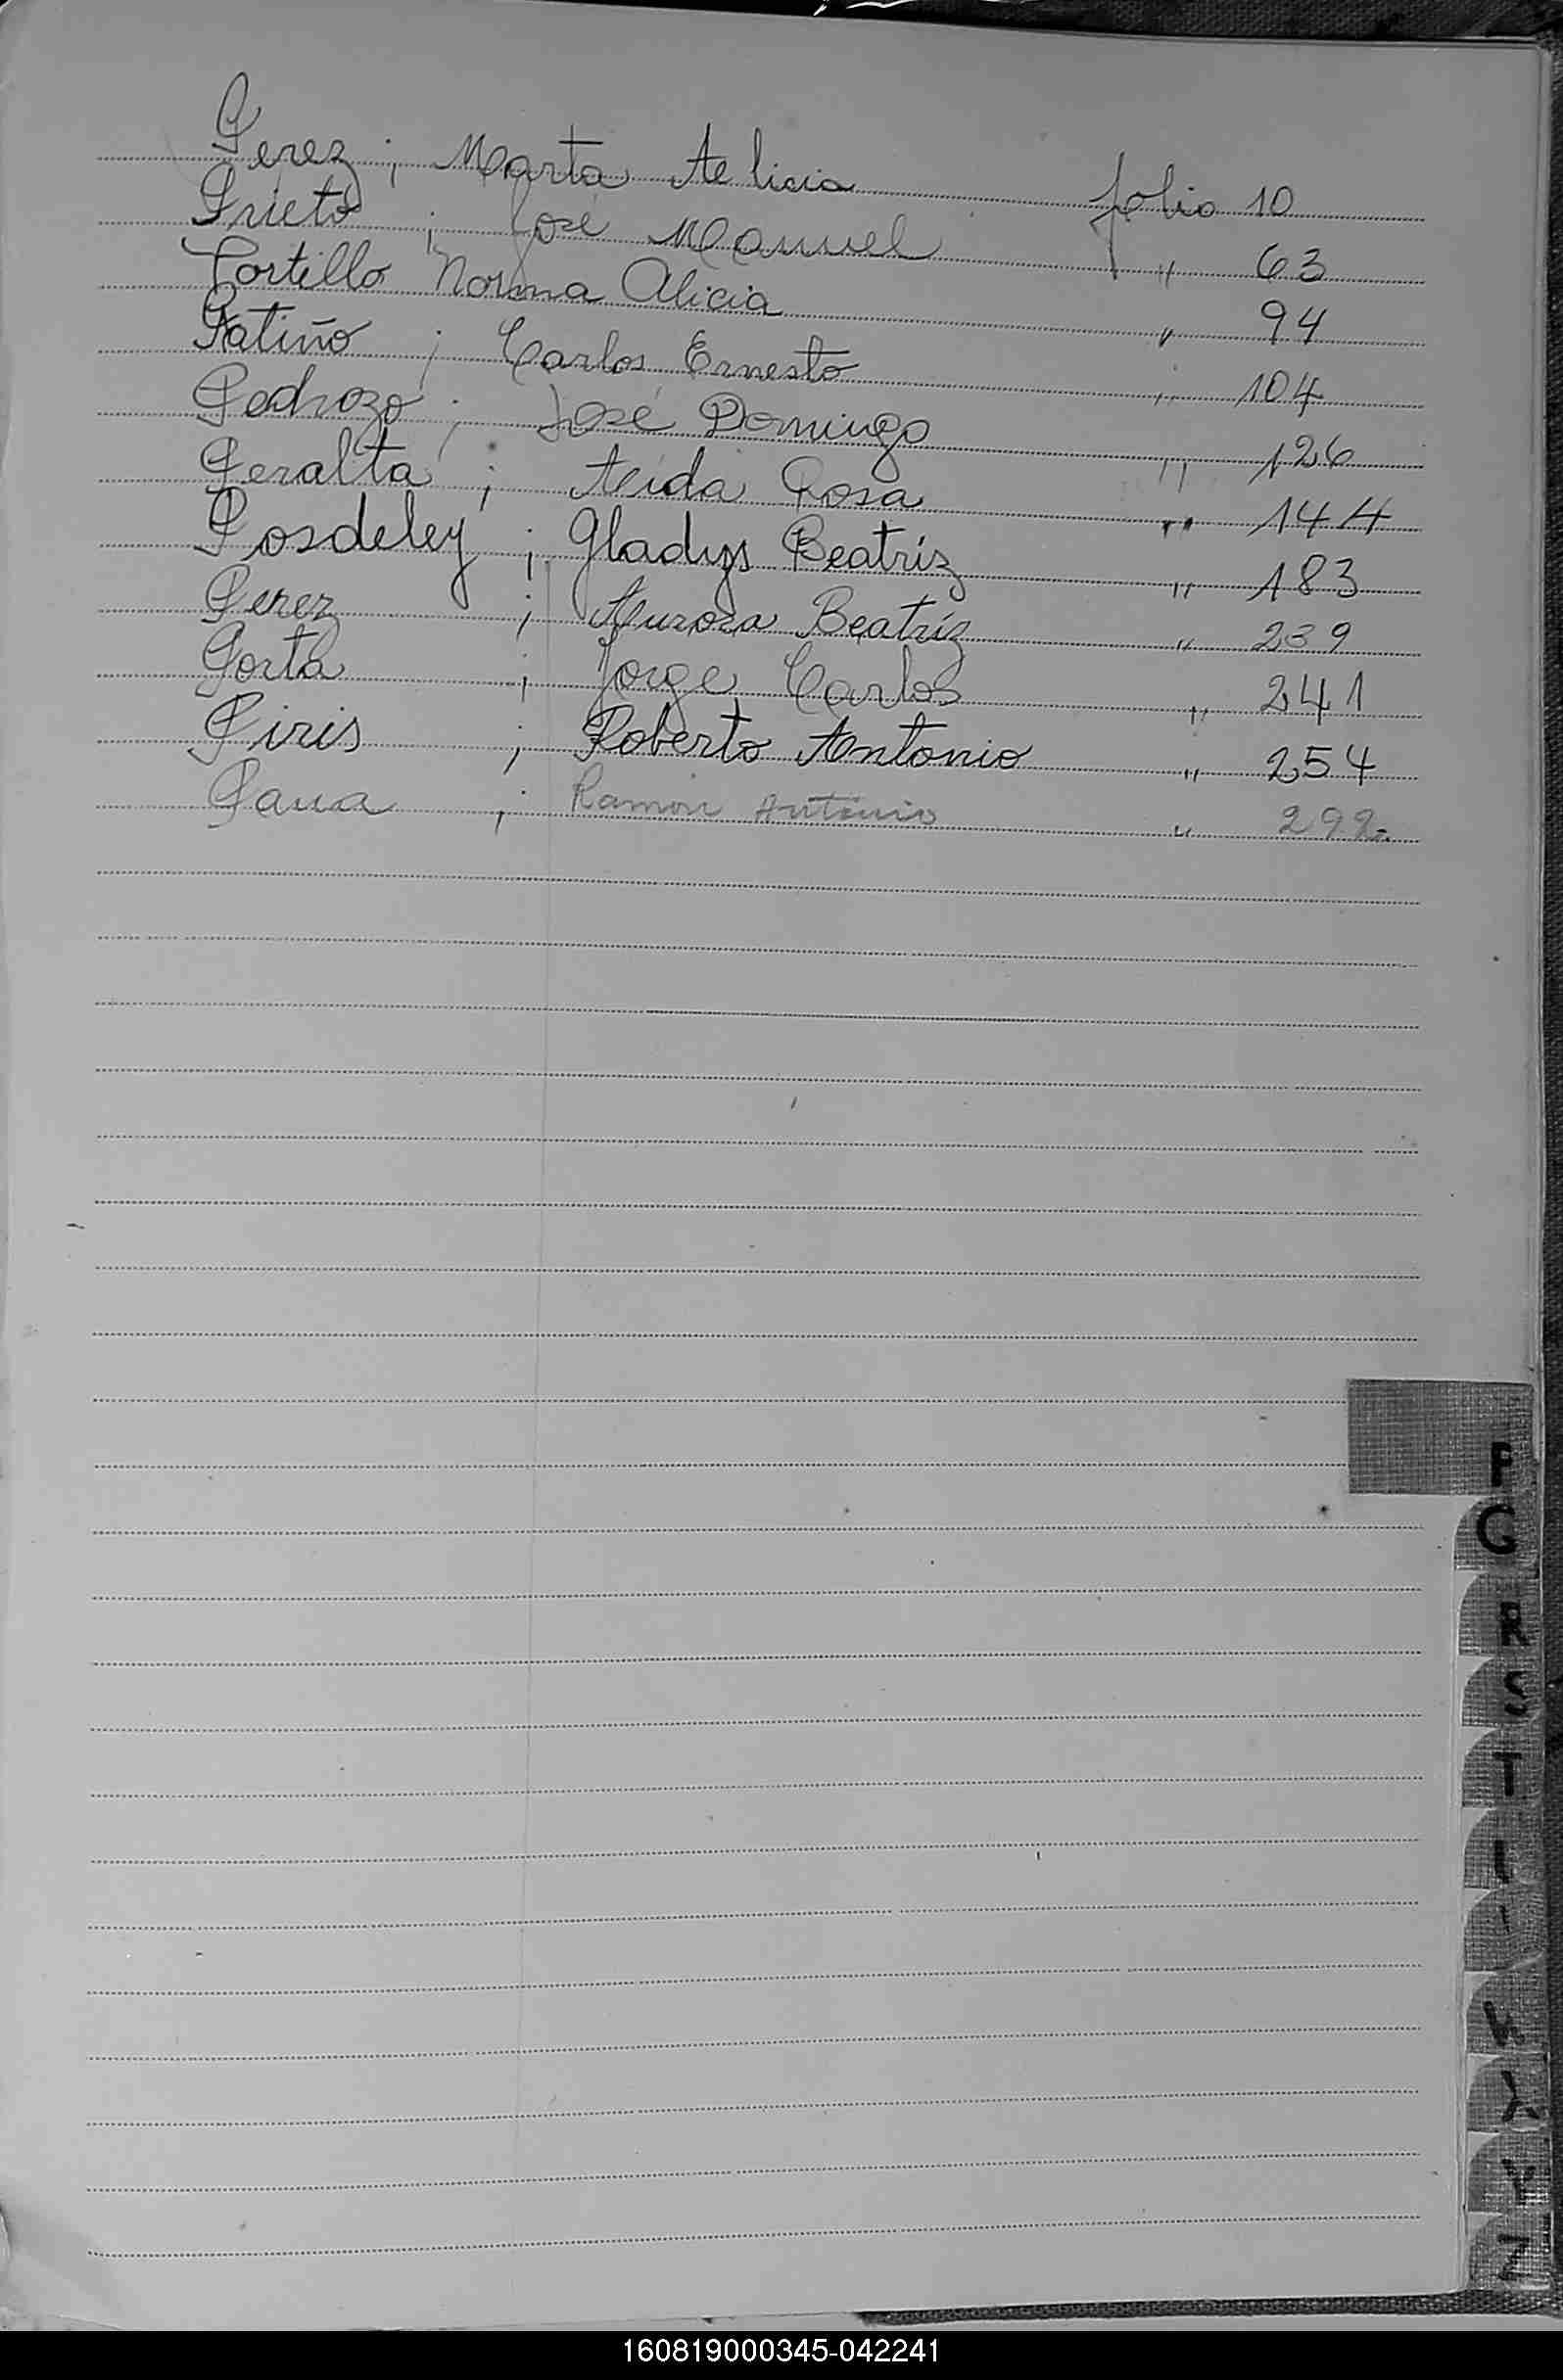 Perez ; Marta Alicia folio 10
Prieto ; José Manuel " 63
Portillo Norma Alicia " 94
Patiño ; Carlos Ernesto " 104
Pedrozo ; José Domingo " 126
Peralta ; Aida Rosa " 144
Posdeley ; Gladys Beatríz " 183
Perez ; Aurora Beatríz " 239
Porta ; Jorge Carlos " 241
Piris ; Roberto Antonio " 254
Paua ; Ramon Antonio " 292-
P
Q
R
S
T
Y
Z
160819000345-042241